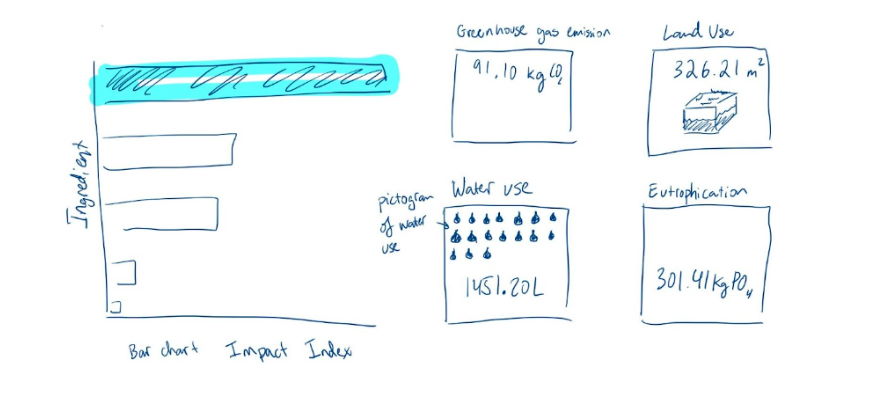 Ingredient
Bar chart Impact Index
Greenhouse gas emission
91.10 kg CO₂
Land Use
326.21 m²
pictogram
of water
use
Water use
1451.20L
Eutrophication
301.41 Kg PO₄